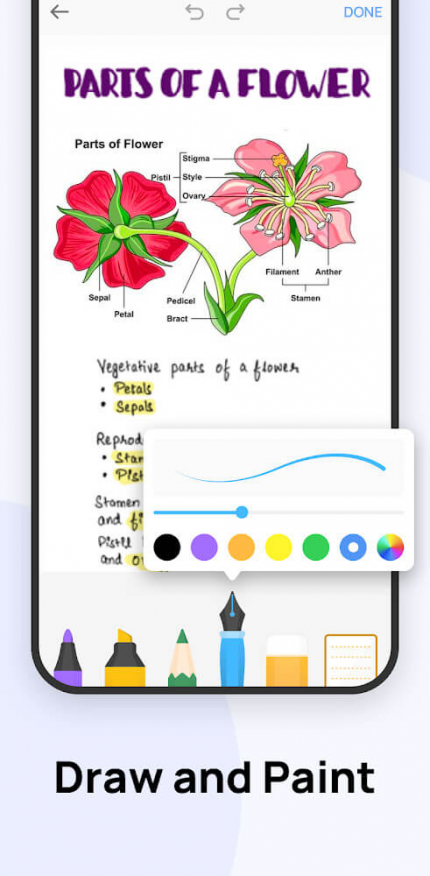 DONE
PARTS OF A FLOWER
Parts of Flower
Stigma
Pistil Style
Ovary
Filament Anther
Stamen
Sepal
Petal
Pedicel
Bract
Vegetative parts of a flower
• Petals
• Sepals
Stamen
and
and
Draw and Paint